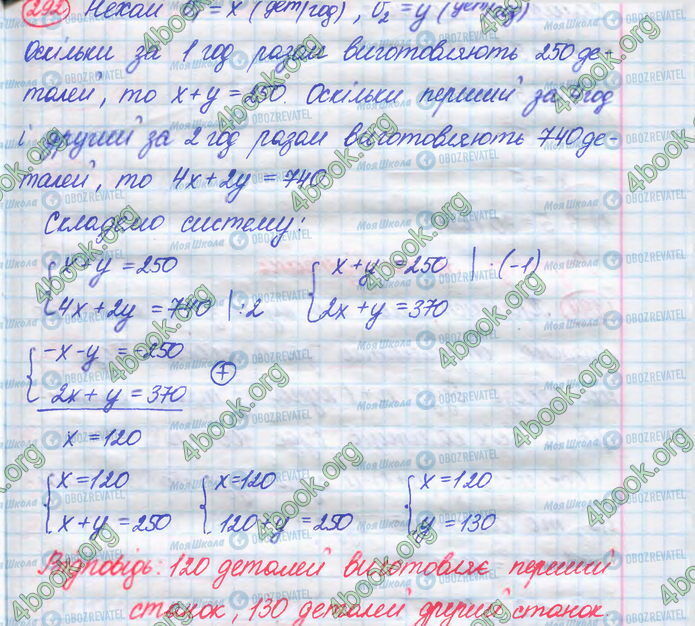 292 Нехай v₁ = x (дет/год), v₂ = y (дет/год)
Оскільки за 1 год разом виготовляють 250 де-
талей, то x+y = 250. Оскільки перший за 4 год
і другий за 2 год разом виготовляють 740 де-
талей, то 4x+2y = 740
Складемо систему:
{x+y = 250 {x+y = 250 | :(-1)
{4x+2y = 740 |:2 {2x+y = 370
{-x-y = -250
{2x+y = 370 (+)
x = 120
{x = 120 {x=120 {x = 120
{x+y = 250 {120+y = 250 {y = 130
Відповідь: 120 деталей виготовляє перший
станок, 130 деталей другий станок.
4book.org
Моя Школа
OBOZREVATEL